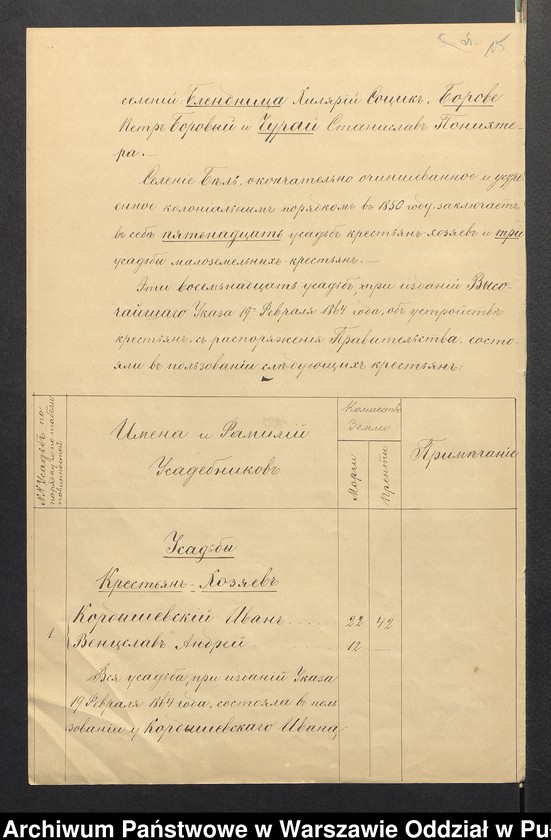 15
селеній: Блендница Хилярій Социкъ, Борове
Петръ Боровый и Чурай Станиславъ Понихте-
ра.—
Селеніе Бѣль, окончательно очиншеванное и устро-
енное колоніальнымъ порядкомъ въ 1850 году, заключаетъ
въ себѣ пятенадцать усадьбъ крестьянъ-хозяевъ и три
усадьбы малоземельныхъ крестьянъ.—
Эти восемьнадцать усадьбъ, при изданіи Высо-
чайшаго Указа 19го Февраля 1864 года, объ устройствѣ
крестьянъ, съ распоряженія Правительства, состо-
яли въ пользованіи слѣдующихъ крестьянъ:
№№ Усадьбъ по
порядку и по табели
повинностей
Имена и Фамиліи
Усадебниковъ
Количество
Земли
Морги
Пренты
Примѣчаніе
Усадьбы
Крестьянъ-Хозяевъ
1
Кордышевскій Иванъ .... 22 42
Венцславъ Андрей 12 —
Вся усадьба, при изданіи Указа
19 Февраля 1864 года, состояла въ поль-
зованіи у Кордышевскаго Ивана,
Archiwum Państwowe w Warszawie Oddział w Pu